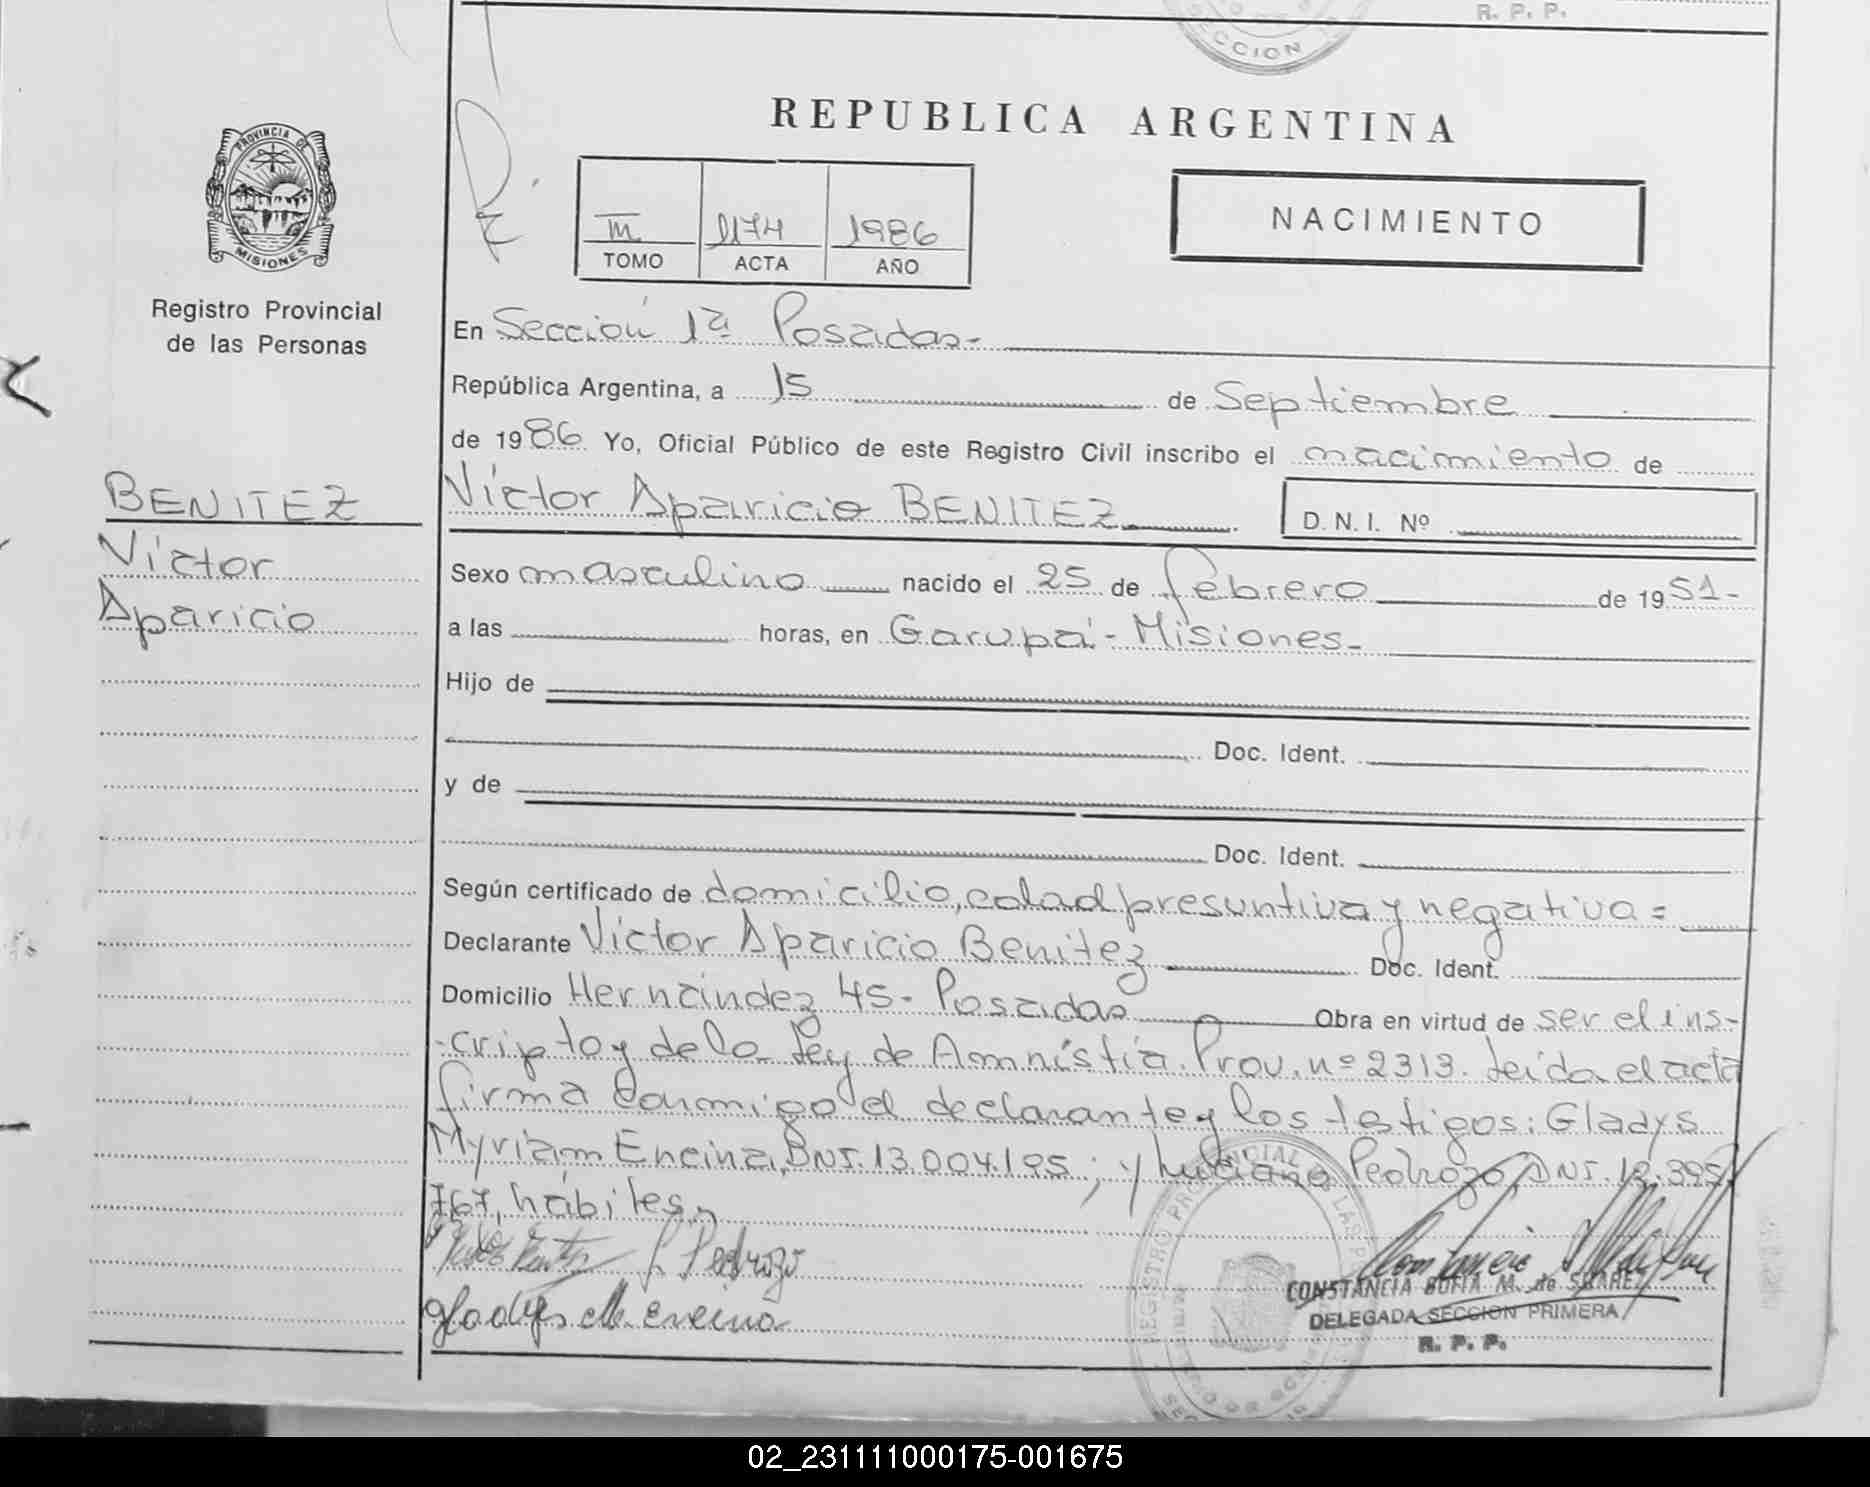 R. P. P.
SECCION
REPUBLICA ARGENTINA
PROVINCIA DE
MISIONES
Registro Provincial
de las Personas
III 1174 1986
TOMO ACTA AÑO
NACIMIENTO
En Sección 1ª Posadas-
República Argentina, a 15 de Septiembre
de 1986 Yo, Oficial Público de este Registro Civil inscribo el nacimiento de
BENITEZ
Víctor
Aparicio
Víctor Aparicio BENITEZ
D. N. I. Nº
Sexo masculino nacido el 25 de febrero de 1951-
a las horas, en Garupá- Misiones-
Hijo de
Doc. Ident.
y de
Doc. Ident.
Según certificado de domicilio, edad presuntiva y negativa=
Declarante Víctor Aparicio Benitez Doc. Ident.
Domicilio Hernández 45- Posadas Obra en virtud de ser el ins-
-cripto y de la Ley de Amnistía Prov. nº 2313. Leída el acta
firma conmigo el declarante y los testigos: Gladys
Myriam Encina, DNI. 13.004.195; y Luciano Pedrozo, DNI. 12.395.
767, hábiles
L. Pedrozo
Gladys M. Encina
CONSTANCIA M. de SUAREZ
DELEGADA SECCION PRIMERA
R. P. P.
02_231111000175-001675